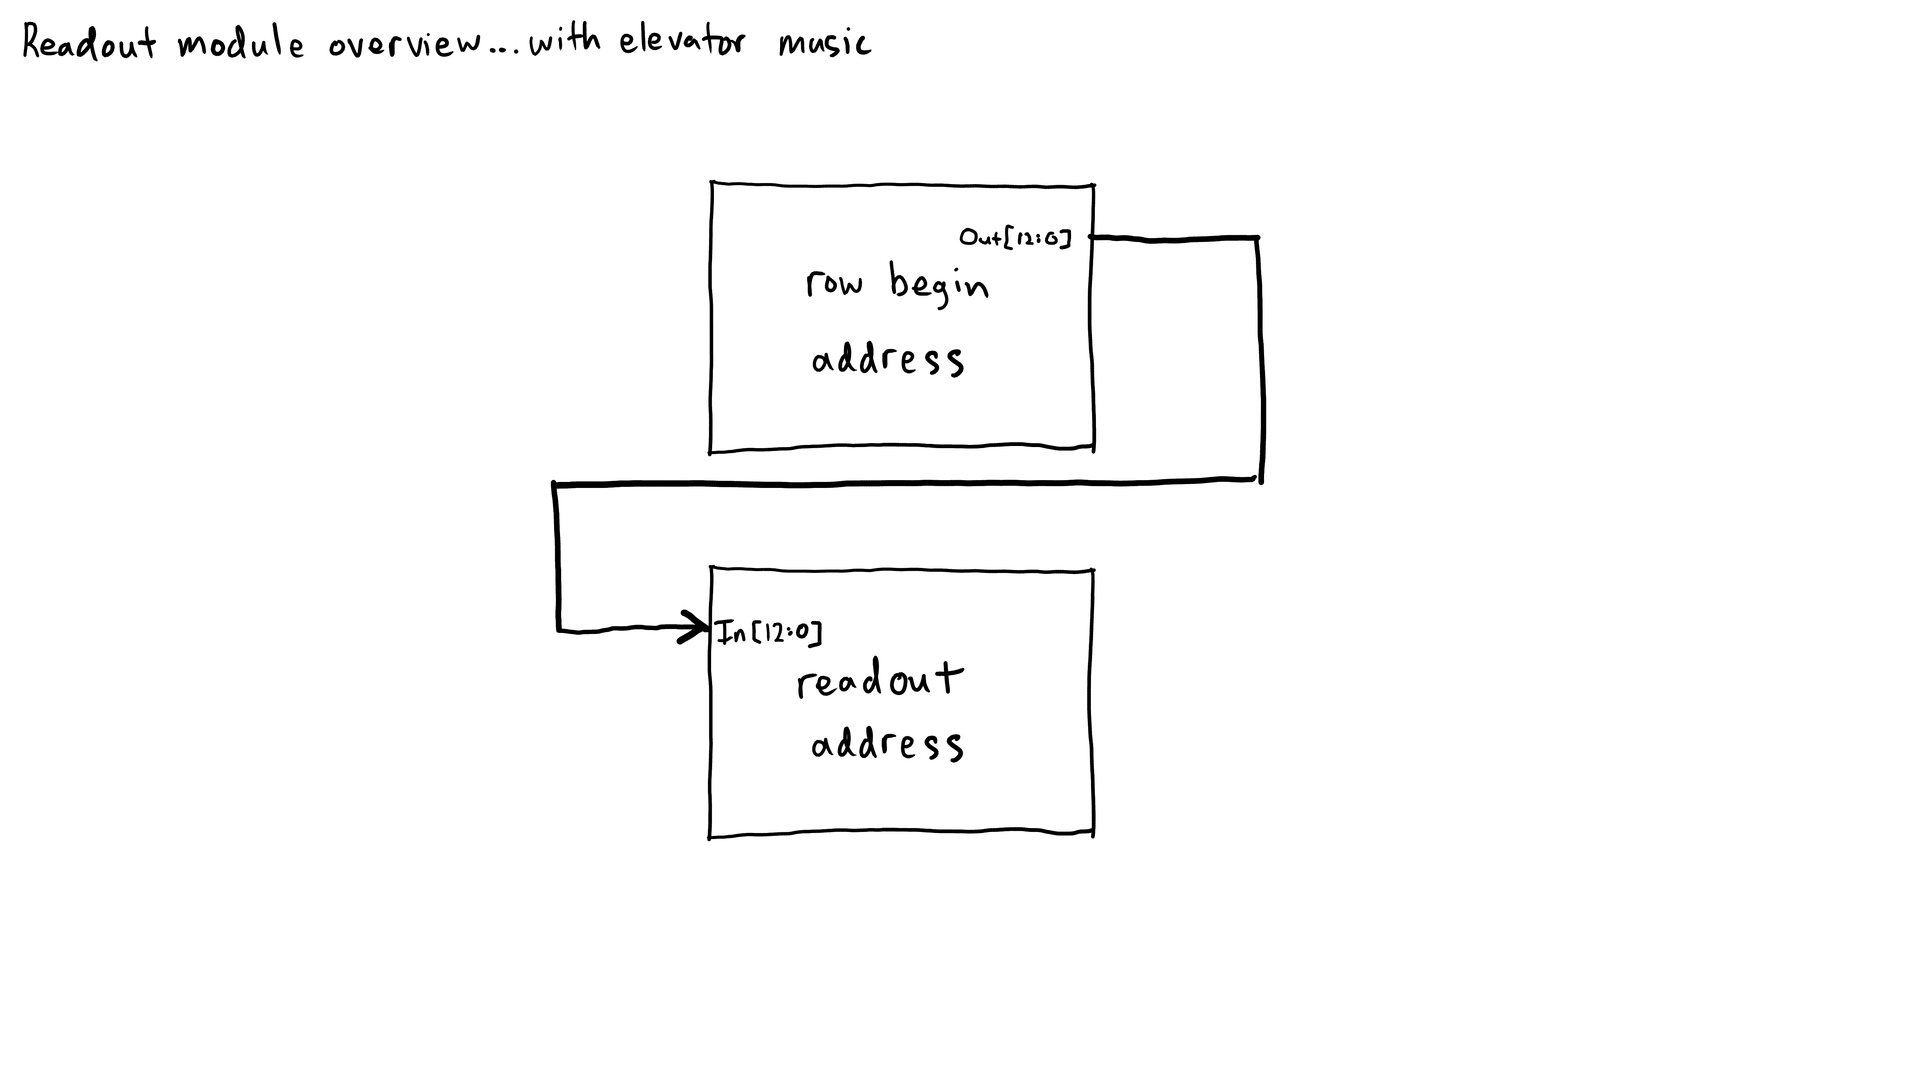 Readout module overview...with elevator music
Out[12:0]
row begin
address
In[12:0]
readout
address